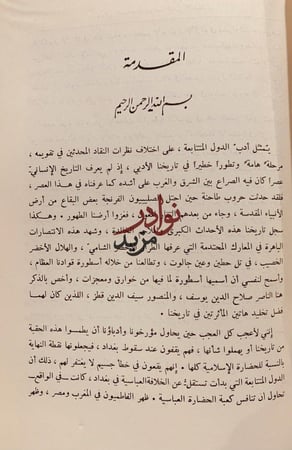 المقدمة
بسم الله الرحمن الرحيم
يتمثل أدب الدول المتتابعة ، على اختلاف نظرات النقاد المحدثين في تقويمه ،
مرحلة هامة وتطوراً خطيراً في تاريخنا الأدبي ، إذ لم يعرف التاريخ الإنساني
عصراً كان فيه الصراع بين الشرق والغرب على أشده كما عرفناه في هذا العصر ،
فقد حدث حروب طاحنة حين احتل الصليبيون الفرنجة بعض البقاع من أرض
الأنبياء المقدسة ، وجاء من بعدهم ، فغزوا أرضنا الطهور . وهكذا
سجل تاريخنا هذه الأحداث الكبرى ، وشهد هذه الانتصارات
الباهرة في المعارك المحتدمة التي عرفها الشامي والهلال الأخضر
الخصيب ، في تل حطين وعين جالوت ، وتطالعنا من خلاله أسطورة قوادنا العظام ،
وأسمح لنفسي أن أسميها أسطورة لما فيها من خوارق ومعجزات ، وأخص بالذكر
هنا الناصر صلاح الدين يوسف ، والمنصور سيف الدين قطز ، اللذين كان لهما
فضل تخليد هاتين المأثرتين في تاريخنا .
إنني لأعجب كل العجب حين يحاول مؤرخونا وأدباؤنا أن يطمسوا هذه الحقبة
من تاريخنا أو يهملوا شأنها ، فهم يقفون عند سقوط بغداد ، فيجعلونها نقطة النهاية
للحضارة الإسلامية كلها . إنهم يقعون في خطأ جسيم لا يغتفر لهم ، ذلك أن
الدول المتتابعة التي بدأت تستقل عن الخلافة العباسية في بغداد ، كانت - في الواقع -
تحاول أن تنافس كعبة الحضارة العباسية . ظهر الفاطميون في المغرب ومصر ، وظهر
نوادر
مزيد